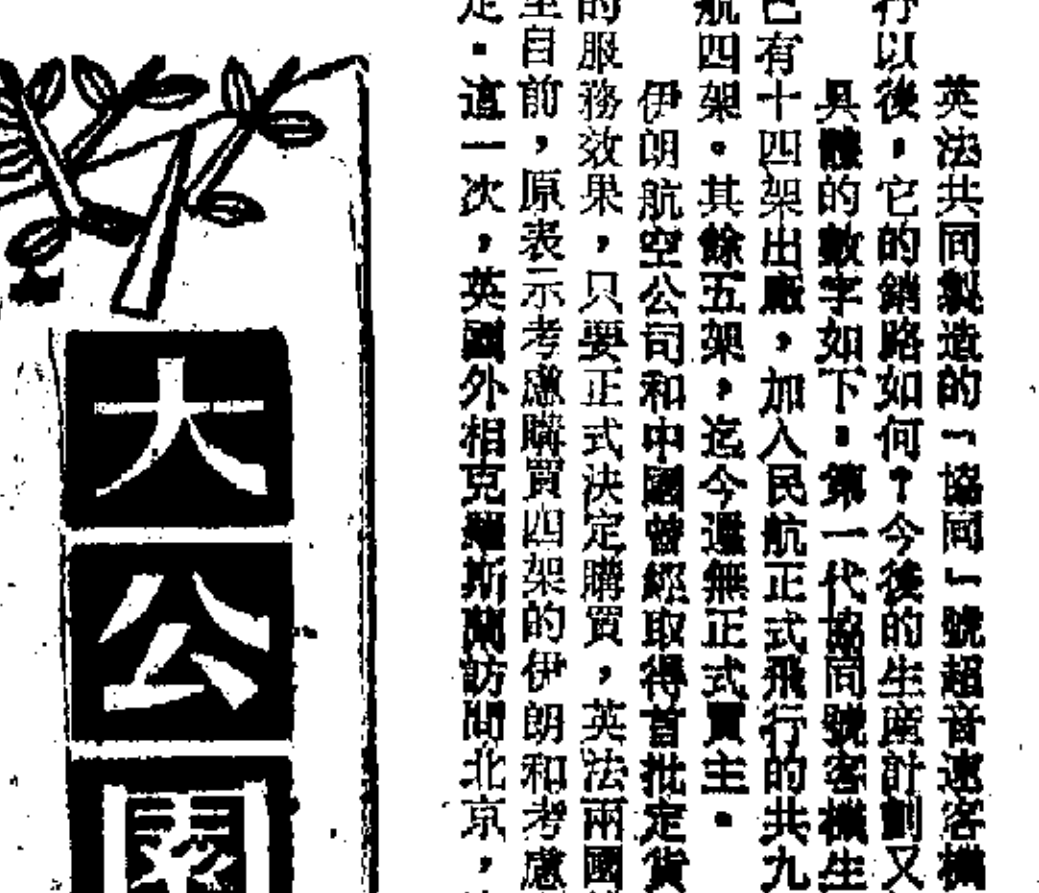 英法共同製造的「協同」號超音速客機
行以後，它的銷路如何？今後的生產計劃又
具體的數字如下。第一代協同號客機生
已有十四架出廠，加入民航正式飛行的共九
航四架。其餘五架，迄今還無正式買主。
伊朗航空公司和中國曾經取得首批定貨
的服務效果，只要正式決定購買，英法兩國
至目前，原表示考慮購買四架的伊朗和考慮
定。這一次，英國外相克羅斯蘭訪問北京，
大公園